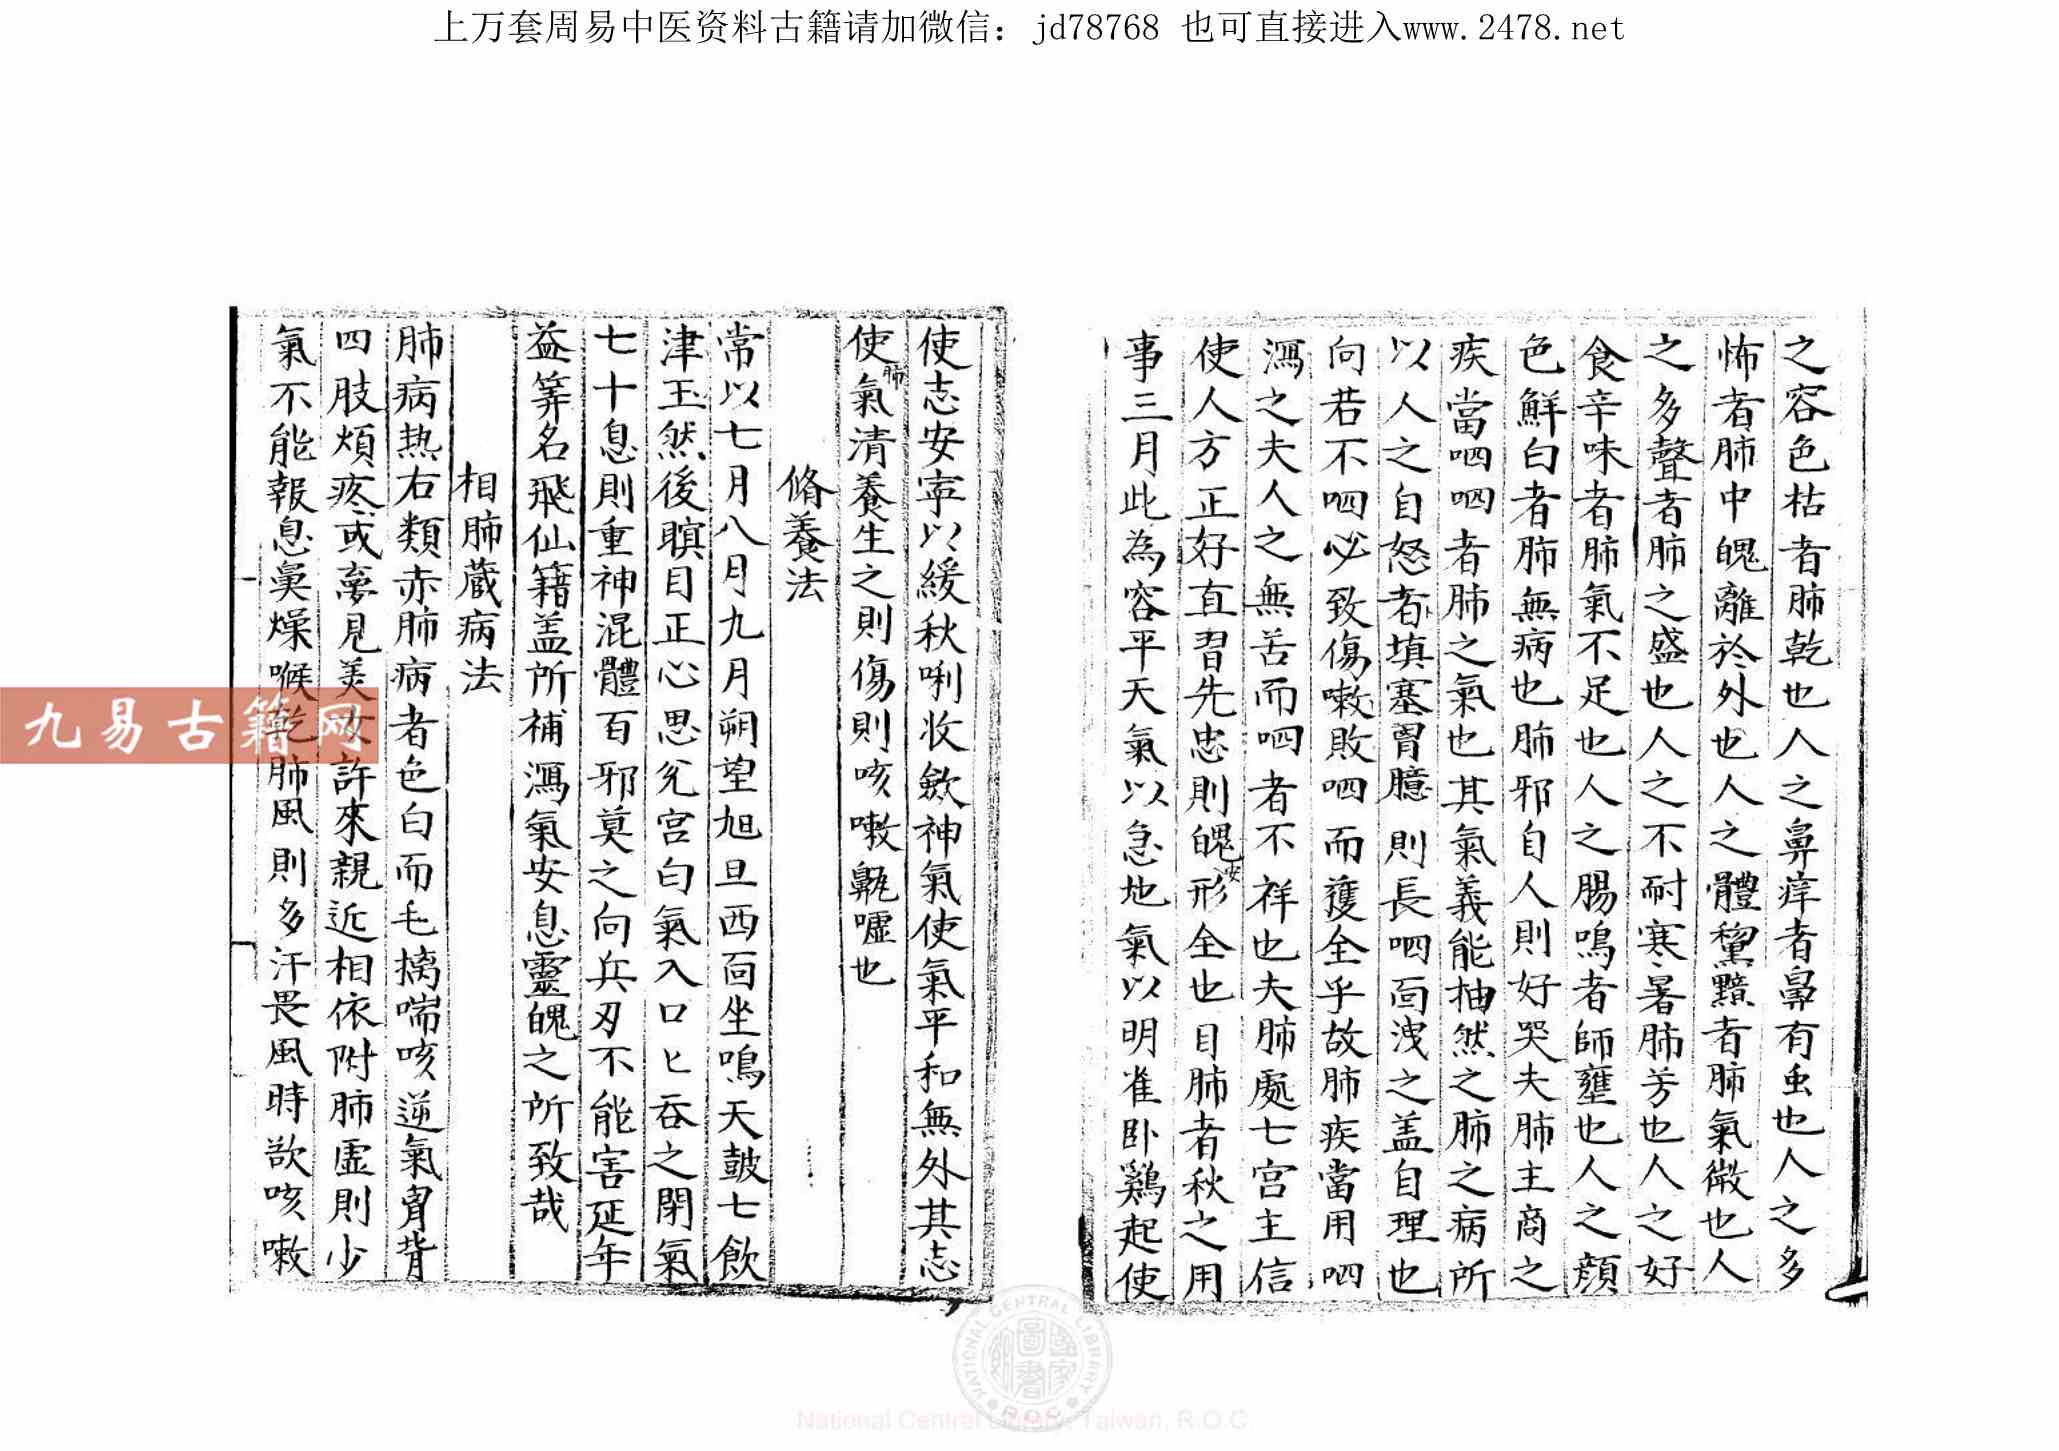 上万套周易中医资料古籍请加微信：jd78768 也可直接进入www.2478.net
之容色枯者肺乾也人之鼻痒者鼻有虫也人之多
怖者肺中魄離於外也人之體黧黯者肺氣微也人
之多聲者肺之盛也人之不耐寒暑肺芳也人之好
食辛味者肺氣不足也人之腸鳴者師壅也人之顏
色鮮白者肺無病也肺邪自人則好哭夫肺主商之
疾當呬呬者肺之氣也其氣義能抽然之肺之病所
以人之自怒者填塞胷臆則長呬靣洩之盖自理也
向若不呬必致傷嗽敗呬而獲全乎故肺疾當用呬
瀉之夫人之無苦而呬者不祥也夫肺處七宮主信
使人方正好直習先忠則魄安形全也目肺者秋之用
事三月此為容平天氣以急地氣以明雀卧鷄起使
使志安寜以緩秋唎收歛神氣使氣平和無外其志
使肺氣清養生之則傷則咳嗽鼽嚏也
脩養法
常以七月八月九月朔望旭旦西靣坐鳴天皷七飲
津玉然後瞑目正心思兊宮白氣入口匕吞之閉氣
七十息則重神混體百邪莫之向兵刃不能害延年
益筭名飛仙籍盖所補瀉氣安息靈魄之所致哉
相肺藏病法
肺病热右類赤肺病者色白而毛摛喘咳逆氣胷背
四肢煩疼或夣見美女許來親近相依附肺虛則少
氣不能報息鼻燥喉乾肺風則多汗畏風時欲咳嗽
九易古籍网
NATIONAL CENTRAL LIBRARY
R.O.C
National Central Library, Taiwan, R.O.C